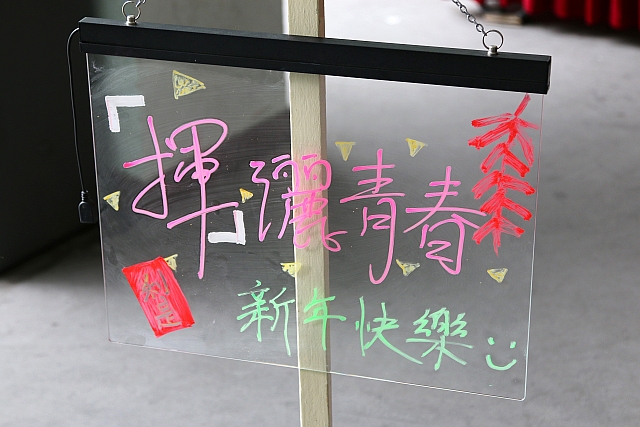 「揮」灑青春
新年快樂:)